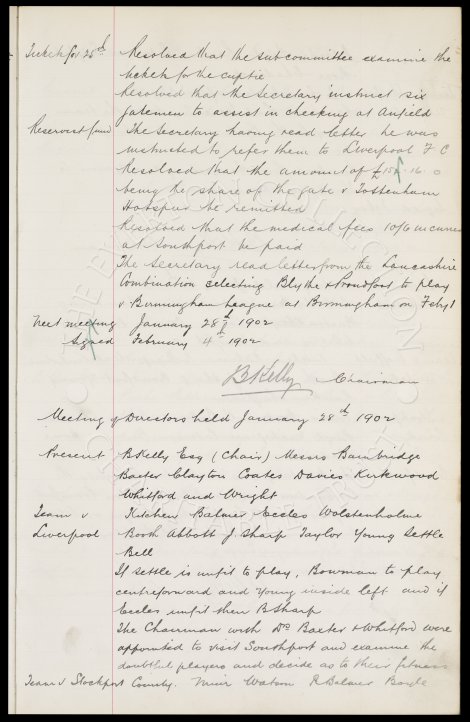 Tickets for 25th Resolved that the subcommittee examine the
tickets for the cuptie
Resolved that the Secretary instruct six
gatemen to assist in checking at Anfield
Reservers fund The Secretary having read letter he was
instructed to refer them to Liverpool F C
Resolved that the amount of
being the share of the gate v Tottenham
Hotspur be remitted
Resolved that the medical fees 10/6 incurred
at Southport be paid
The Secretary read letter from the Lancashire
Combination selecting Blythe & Proudfoot to play
v Birmingham League at Birmingham on Feby 1
Next meeting January 28th 1902
Signed February 4th 1902
B Kelly Chairman
Meeting of Directors held January 28th 1902
Present B Kelly Esq (Chair) Messrs Bainbridge
Baxter Clayton Coates Davies Kirkwood
Whitford and Wright
Team v Kitchen Balmer Eccles Wolstenholme
Liverpool Booth Abbott J. Sharp Taylor Young Settle
Bell
If Settle is unfit to play, Bowman to play
centreforward and Young inside left and if
Eccles unfit then B Sharp
The Chairman with Drs Baxter & Whitford were
appointed to visit Southport and examine the
doubtful players and decide as to their fitness
Team v Stockport County. Muir Watson R Balmer Boyle